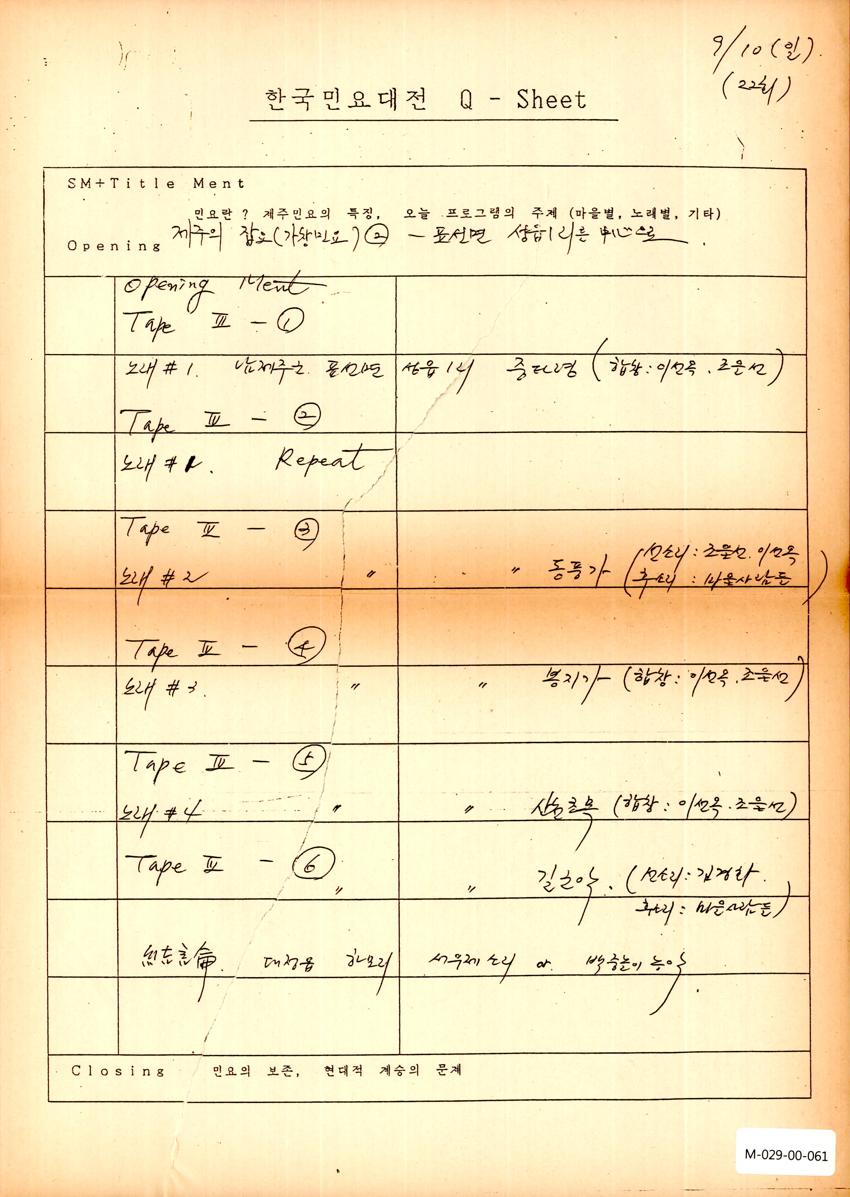 9/10 (일)
(22회)
한국민요대전 Q - Sheet
SM+Title Ment
민요란? 제주민요의 특징, 오늘 프로그램의 주제 (마을별, 노래별, 기타)
Opening 제주의 잡요(가창민요) ② — 표선면 성읍1리를 中心으로.
Opening Ment
Tape Ⅲ - ①
노래 #1. 남제주군 표선면 성읍1리 중타령 (합창: 이선옥. 조을선)
Tape Ⅲ - ②
노래 #1. Repeat
Tape Ⅲ - ③
노래 #2 〃 〃 동풍가 (선소리: 조을선. 이선옥
후소리: 마을사람들)
Tape Ⅲ - ④
노래 #3. 〃 〃 봉지가 (합창: 이선옥. 조을선)
Tape Ⅲ - ⑤
노래 #4 〃 〃 산천초목 (합창: 이선옥. 조을선)
Tape Ⅲ - ⑥
〃 〃 길군악. (선소리: 김경화.
후소리: 마을사람들)
대정읍 하모리 서우제소리 or
Closing 민요의 보존, 현대적 계승의 문제
M-029-00-061